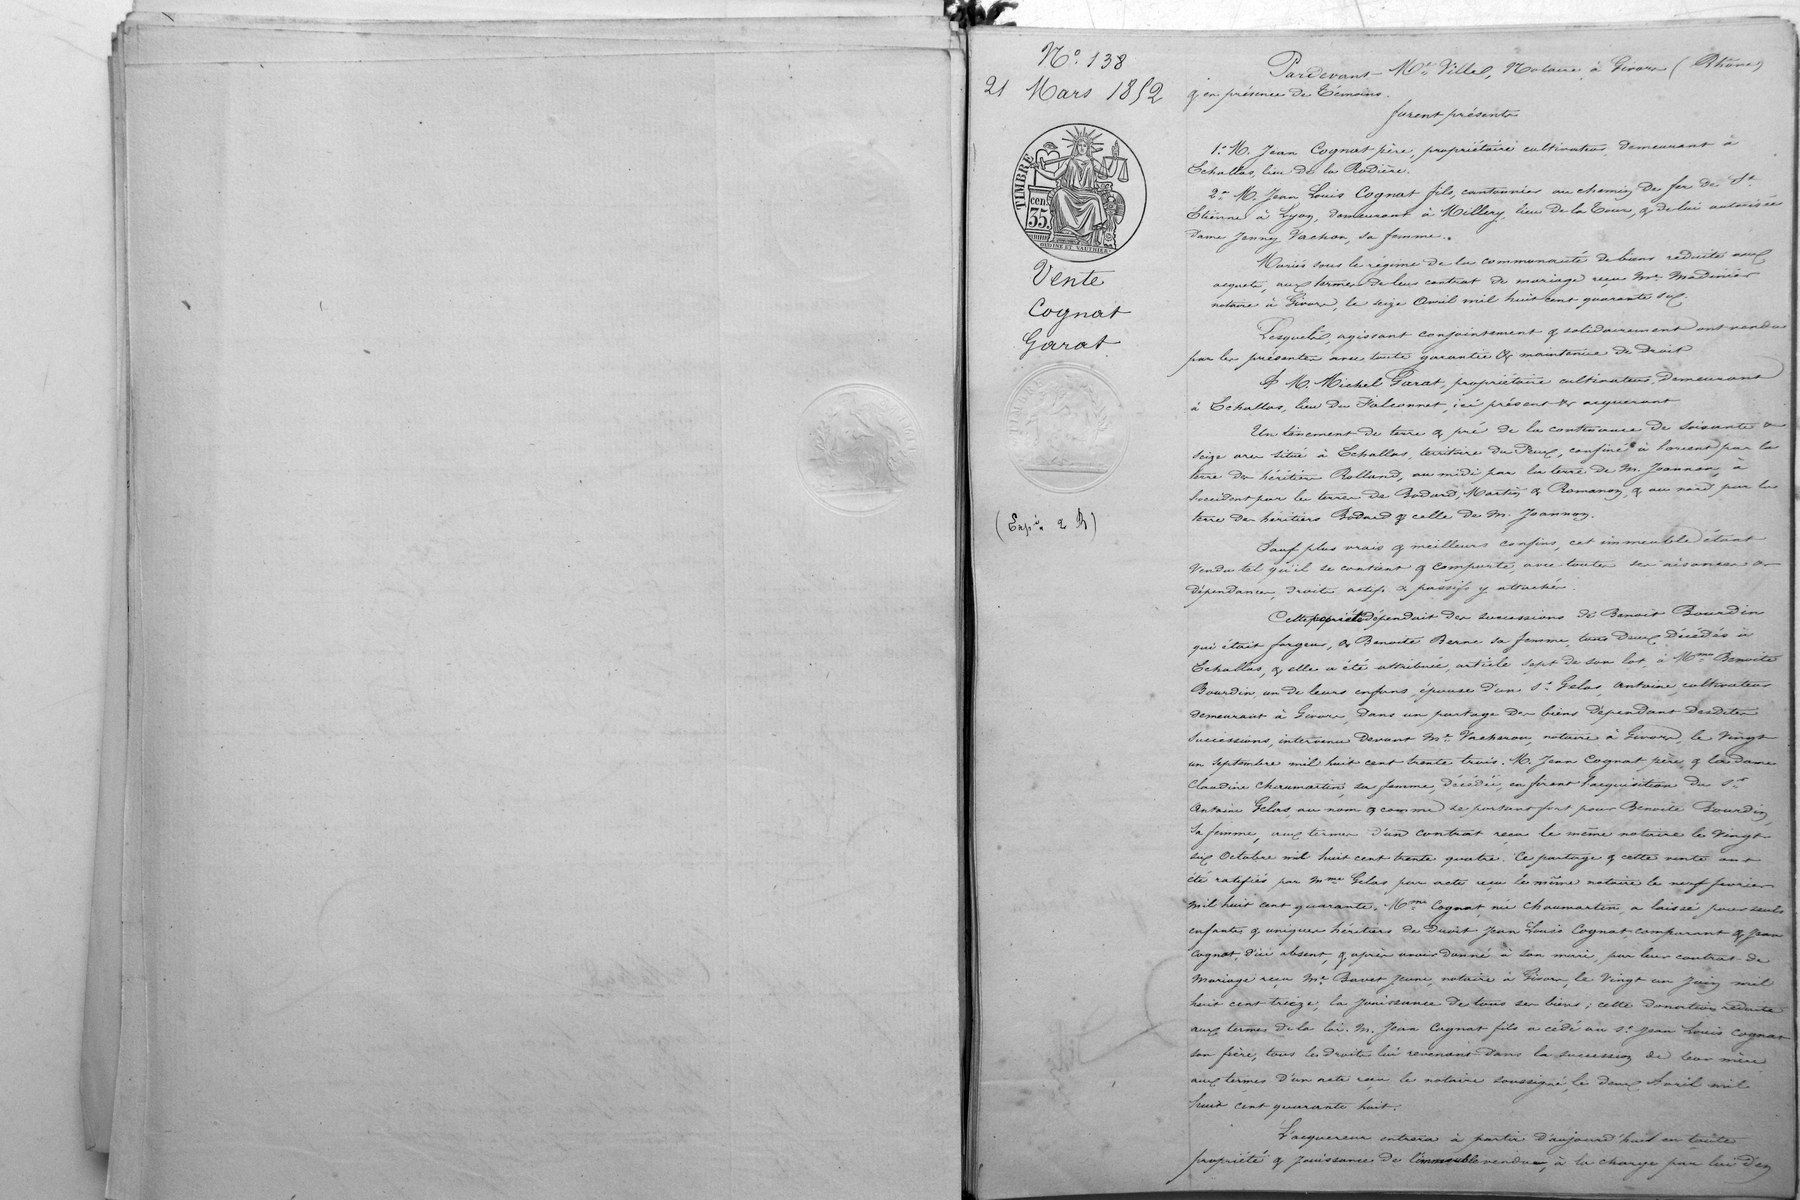 N.º 138
21 Mars 1852
TIMBRE
cen.
35
OUDINÉ ET VAUTHIER
Vente
Cognat
Garat
(Exp.é a 2 R)
Pardevant Me Villel, Notaire à Givors (Rhône)
& en présence de témoins.
furent présents
1.º M. Jean Cognat père, propriétaire cultivateur, demeurant à
Echallas, lieu de la Rodière.
2.º M. Jean Louis Cognat fils, cantonnier au chemin de fer de St
Etienne à Lyon, demeurant à Millery, lieu de la Tour, & de lui autorisée
dame Jenny Vachon, sa femme.
Mariés sous le régime de la communauté de biens réduite aux
acquets, aux termes de leur contrat de mariage reçu Me Madinier
notaire à Givors, le seize Avril mil huit cent quarante six.
Lesquels, agissant conjointement & solidairement ont vendu
par les présentes avec toute garantie & maintenue de droit
A M. Michel Garat, propriétaire cultivateur, demeurant
à Echallas, lieu du Falconnet, ici présent & acquerant
Un tènement de terre & pré de la contenance de soixante &
seize ares situé à Echallas, territoire du Peux, confiné à l'orient par la
terre des héritiers Rolland, au midi par la terre de M. Joannon, à
l'occident par les terres de Bodard, Martin & Romanon, & au nord par la
terre des héritiers Bodard & celle de M. Joannon.
Sauf plus vrais & meilleurs confins, cet immeuble étant
vendu tel qu'il se contient & comporte, avec toutes ses aisances &
dépendances, droits actifs & passifs y attachés.
Cette propriété dépendait des successions de Benoit Bourdin
qui était forgeur, & Benoite Berne sa femme, tous deux décédés à
Echallas, & elle a été attribuée, article sept de son lot, à Mme Benoite
Bourdin, un de leurs enfans, épouse d'un Sr Gelas, Antoine, cultivateur
demeurant à Givors, dans un partage des biens dépendant desdites
successions, intervenu devant Me Vacheron, notaire à Givors, le vingt
un septembre mil huit cent trente trois. M. Jean Cognat père & la dame
Claudine Chaumartin, sa femme, décédée, en firent l'acquisition du Sr
Antoine Gelas, au nom & comme se portant fort pour Benoite Bourdin,
sa femme, aux termes d'un contrat reçu le même notaire le vingt
six Octobre mil huit cent trente quatre. Ce partage & cette vente ont
été ratifiés par Mme Gelas par acte reçu le même notaire le neuf février
mil huit cent quarante. Mme Cognat, née Chaumartin, a laissé pour seuls
enfants & uniques héritiers de droit Jean Louis Cognat, comparant & Jean
Cognat, d'ici absent, & après avoir donné à son mari, par leur contrat de
mariage reçu Me Bavet Jeune, notaire à Givors, le vingt un Juin mil
huit cent treize, la jouissance de tous ses biens; cette donation réduite
aux termes de la loi. M. Jean Cognat fils a cédé au Sr Jean Louis Cognat
son frère, tous les droits lui revenant dans la succession de leur mère
aux termes d'un acte reçu le notaire soussigné, le deux Avril mil
huit cent quarante huit.
L'acquereur entrera à partir d'aujourd'hui en toute
propriété & jouissance de l'immeuble vendu, à la charge par lui d'en